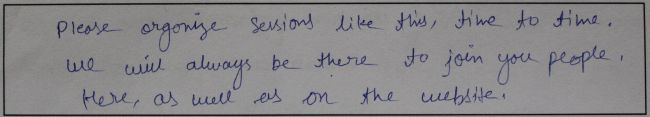 Please organize sessions like this, time to time.
We will always be there to join you people.
Here, as well as on the website.